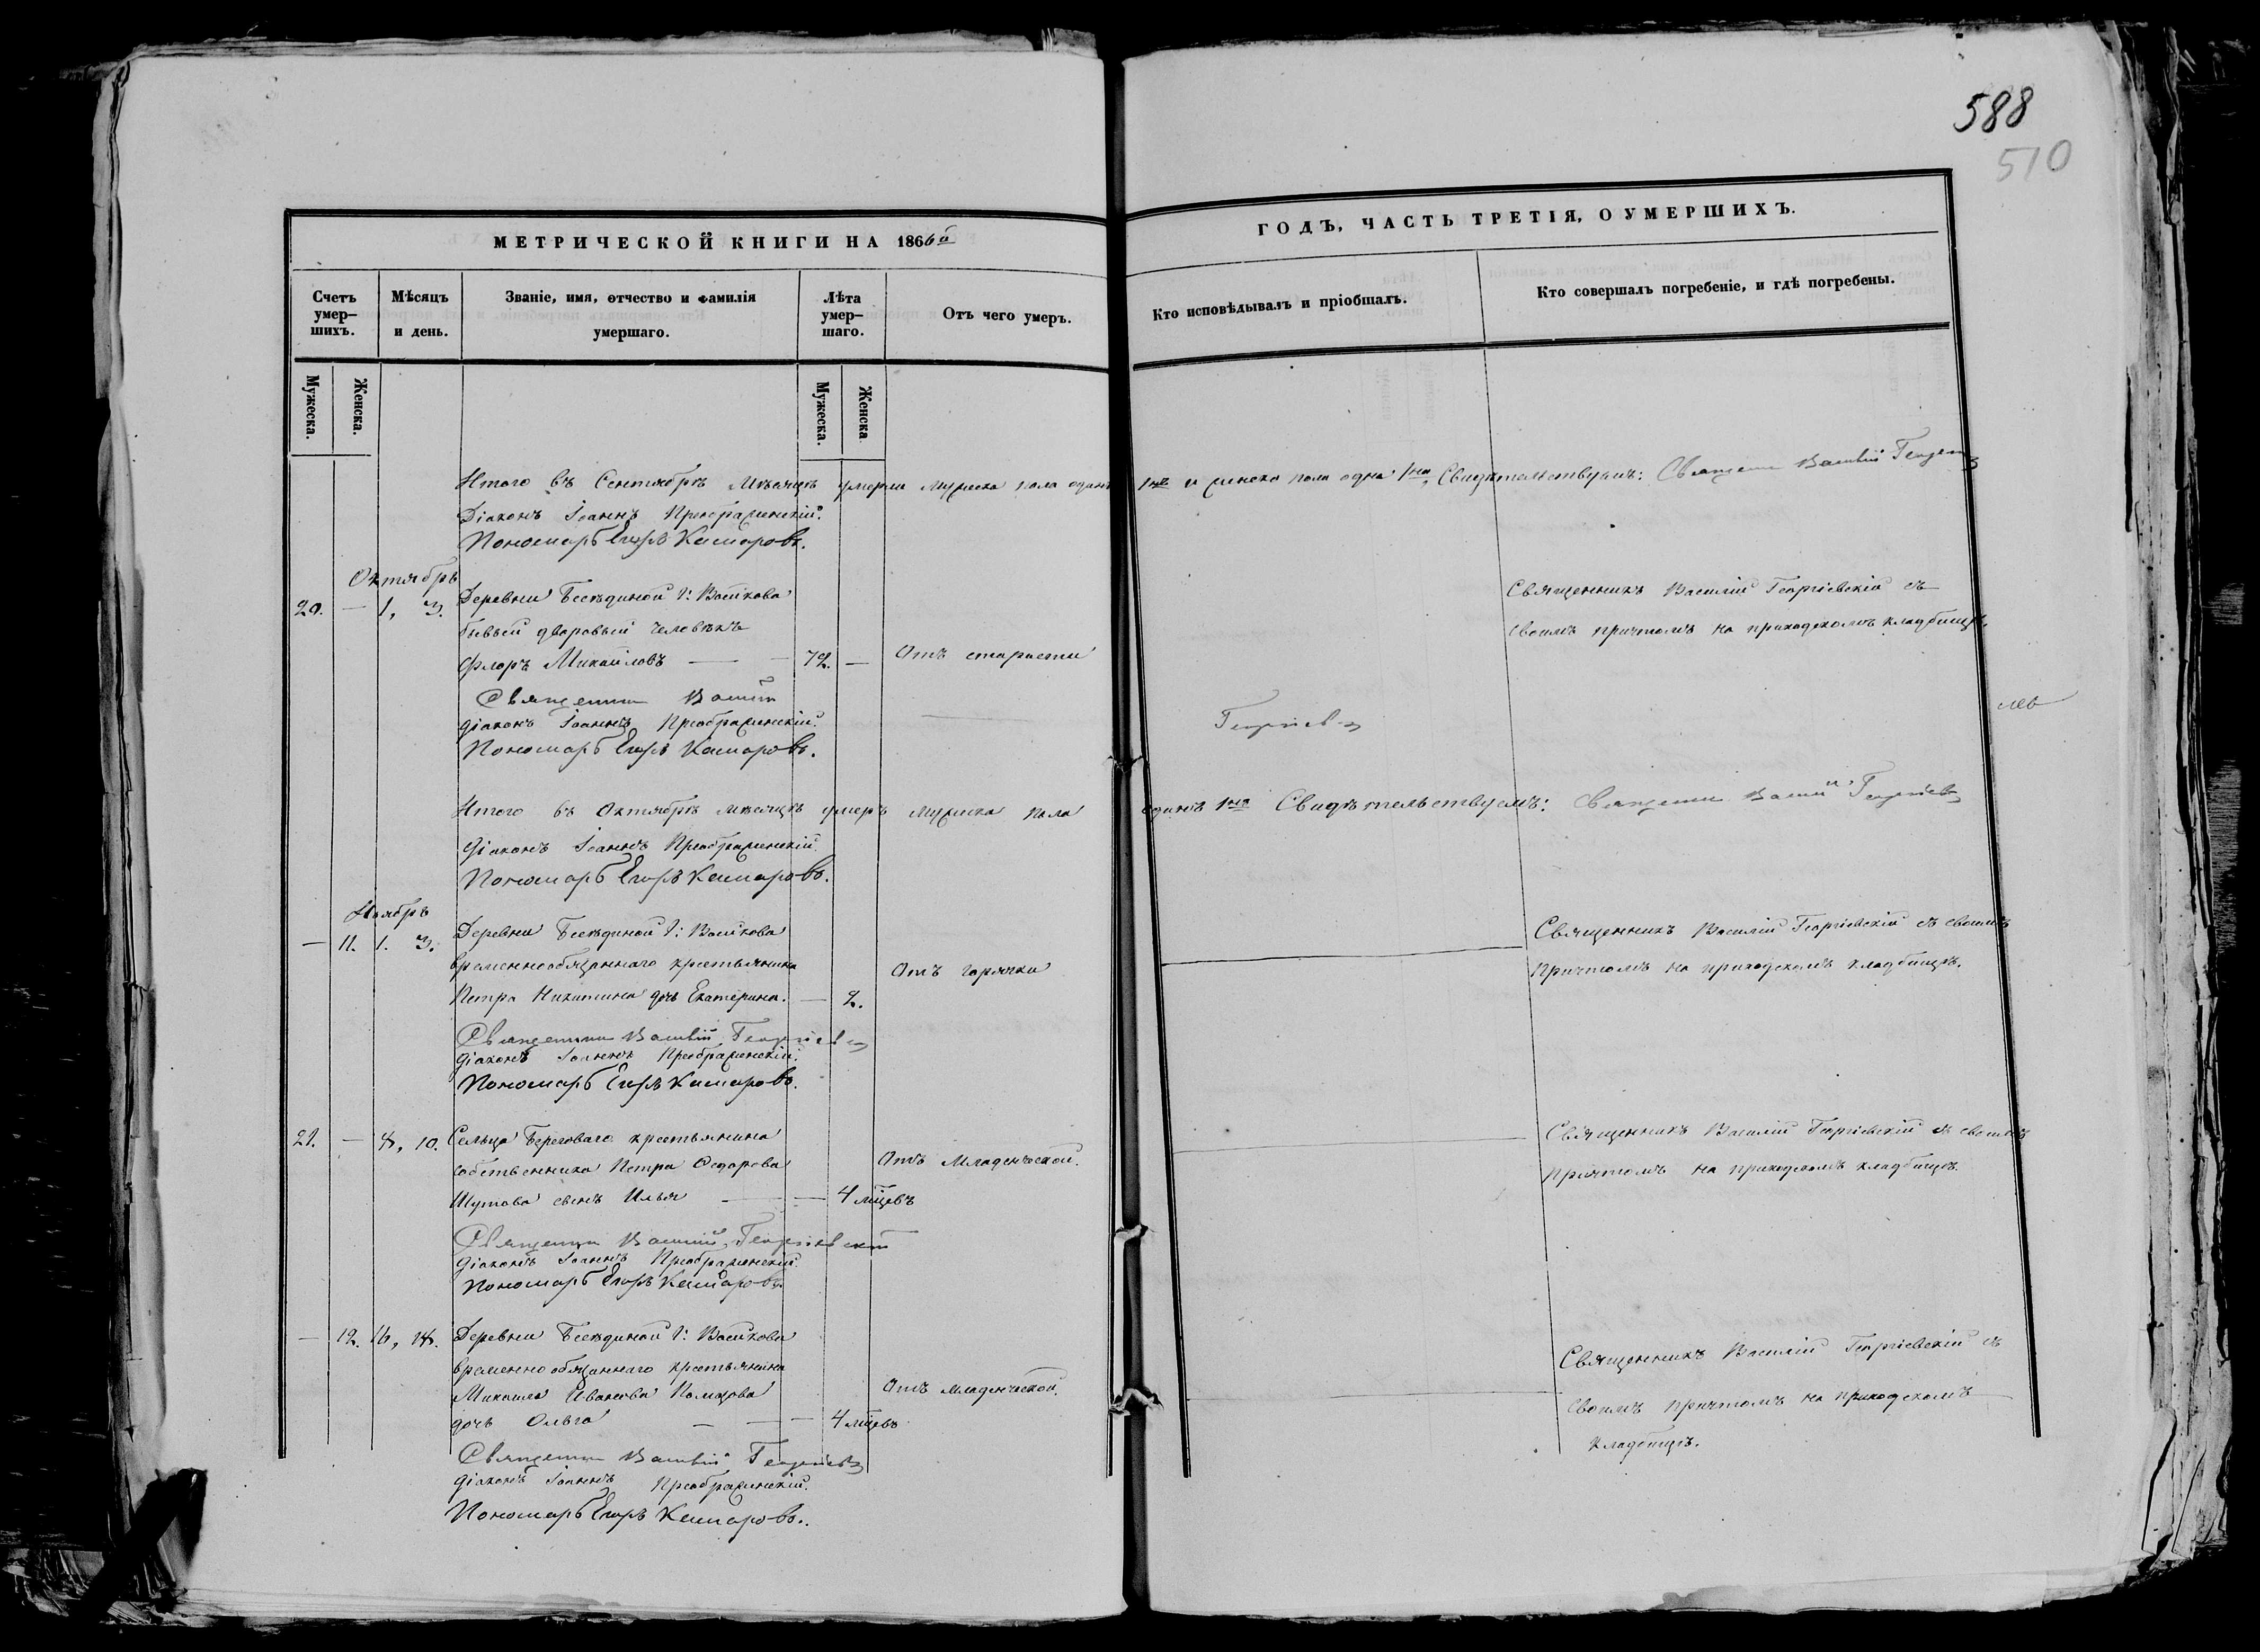 588
510
МЕТРИЧЕСКОЙ КНИГИ НА 1866й
ГОДЪ, ЧАСТЬ ТРЕТІЯ, О УМЕРШИХЪ.
Счетъ умер-
шихъ.
Мѣсяцъ
и день.
Званіе, имя, отчество и фамилія
умершаго.
Лѣта
умер-
шаго.
Отъ чего умеръ.
Кто исповѣдывалъ и пріобщалъ.
Кто совершалъ погребеніе, и гдѣ погребены.
Мужеска.
Женска.
Мужеска.
Женска
Итого въ Сентябрѣ мѣсяцѣ умерли мужеска пола одинъ 1нъ и женска пола одна 1на, Свидѣтельствуемъ: Священн Василій Георгіев
Діаконъ Іоаннъ Преображенскій.
Пономарь Егоръ Комаровъ.
Октябрь
20. — 1, 3. Деревни Бесѣдиной г: Войкова
бывый дворовый человѣкъ
Флоръ Михайловъ — — 72. — Отъ старости
Священникъ Василій Георгіевскій съ
своимъ причтомъ на приходскомъ кладбищѣ.
Священн Василій Георгіев
діаконъ Іоаннъ Преображенскій.
Пономарь Егоръ Комаровъ.
Итого въ Октябрѣ мѣсяцѣ умеръ мужеска пола одинъ 1нъ Свидѣтельствуемъ: Священн Василій Георгіев
Діаконъ Іоаннъ Преображенскій.
Пономарь Егоръ Комаровъ.
Ноябрь
— 11. 1. 3. Деревни Бесѣдиной г: Войкова
временнообязаннаго крестьянина
Петра Никитина дочь Екатерина. — 2.
Отъ горячки
Священникъ Василій Георгіевскій съ своимъ
причтомъ на приходскомъ кладбищѣ.
Священник Василій Георгіев
діаконъ Іоаннъ Преображенскій.
Пономарь Егоръ Комаровъ.
21. — 8, 10. Сельца Береговаго крестьянина
собственника Петра Федорова
сынъ Илья — — 4 мцевъ
Отъ Младенческой.
Священникъ Василій Георгіевскій съ своимъ
причтомъ на приходскомъ кладбищѣ.
Священн Василій Георгіевскій
діаконъ Іоаннъ Преображенскій.
Пономарь Егоръ Комаровъ.
— 12. 16, 18. Деревни Бесѣдиной г: Войкова
временнообязаннаго крестьянина
Михаила Иванова
дочь Ольга — — 4 мцевъ
Отъ младенческой.
Священникъ Василій Георгіевскій съ
своимъ причтомъ на приходскомъ
кладбищѣ.
Священн Василій Георгіев
діаконъ Іоаннъ Преображенскій.
Пономарь Егоръ Комаровъ.